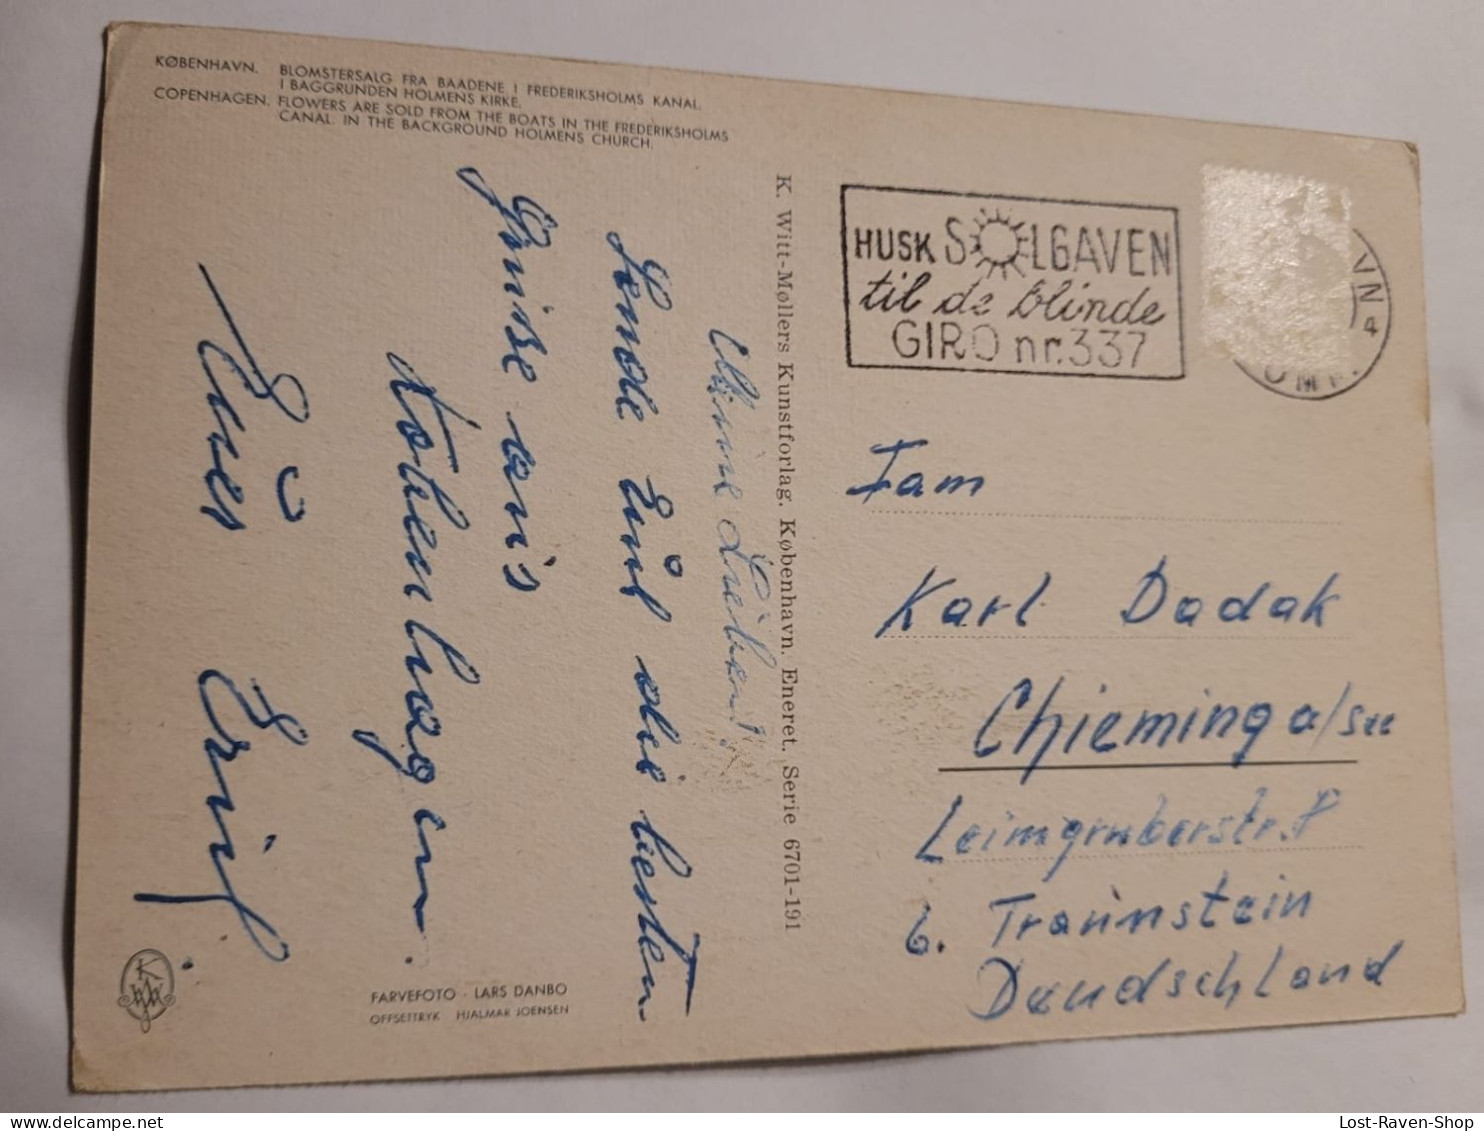 KØBENHAVN. BLOMSTERSALG FRA BAADENE I FREDERIKSHOLMS KANAL.
I BAGGRUNDEN HOLMENS KIRKE.
COPENHAGEN. FLOWERS ARE SOLD FROM THE BOATS IN THE FREDERIKSHOLMS
CANAL. IN THE BACKGROUND HOLMENS CHURCH.
Meine Lieben!
Sende Euch die besten
Grüsse aus
Kobenhagen.
Euer
FARVEFOTO · LARS DANBO
OFFSETTRYK HJALMAR JOENSEN
K. Witt-Møllers Kunstforlag. København. Eneret. Serie 6701-191
HUSK SOLGAVEN
til de blinde
GIRO nr. 337
VN
OMK.
Fam
Karl Dadak
Chieming a/see
Leimgruberstr.
b. Traunstein
Deudschland
Lost-Raven-Shop
delcampe.net